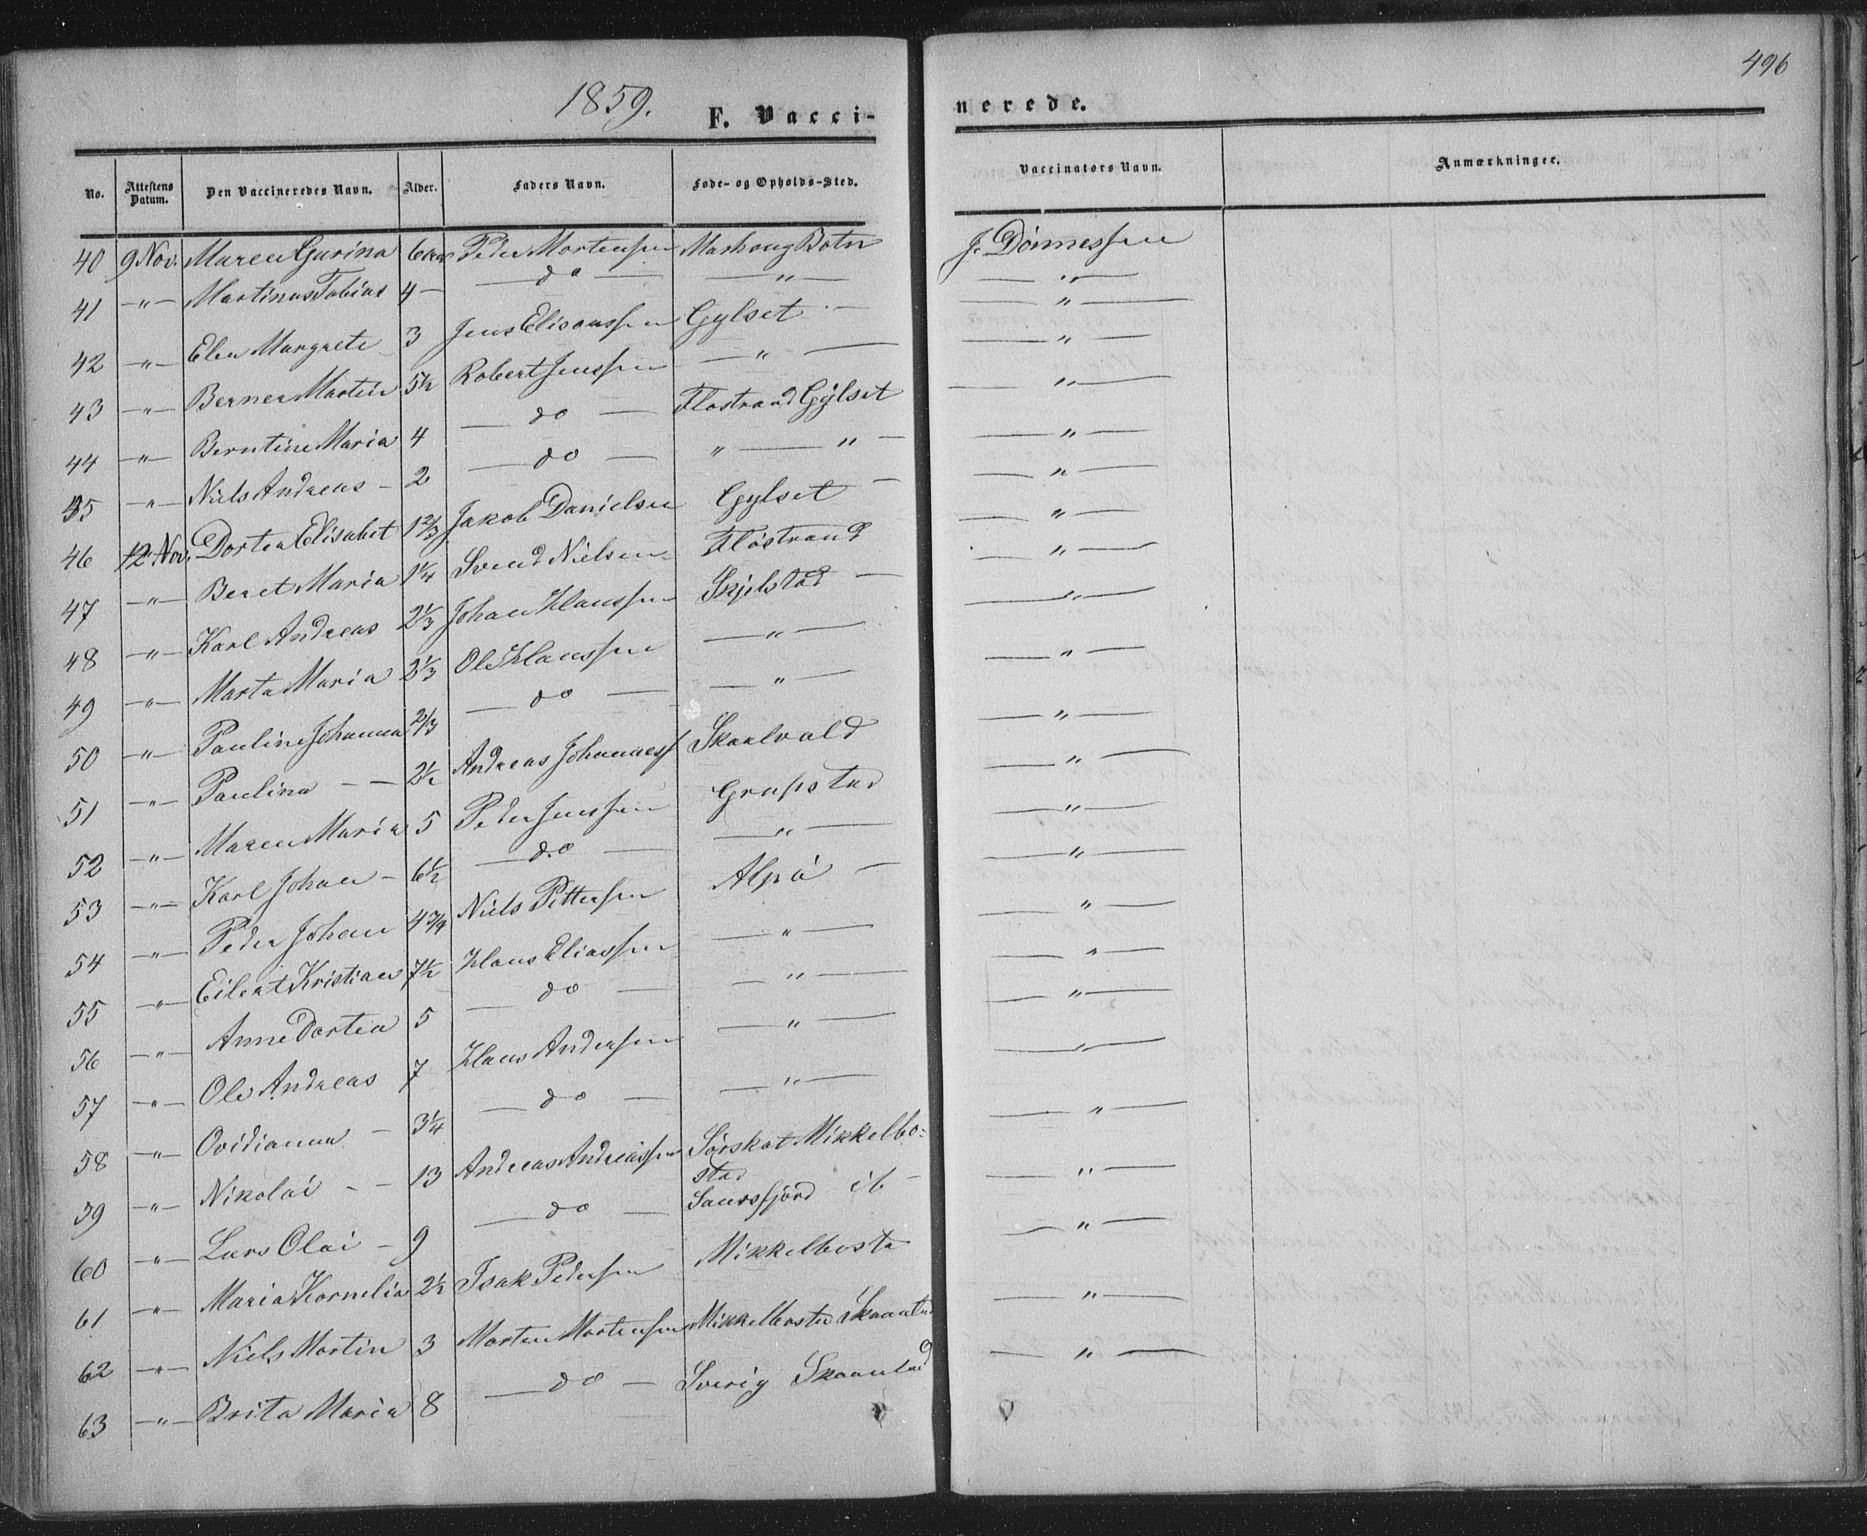 496
1859.
F. Vacci-
nerede.
No. Attestens Datum. Den Vaccineredes Navn. Alder. Faders Navn. Føde- og Opholds-Sted. Vaccinators Navn. Anmærkninger.
40 9 Nov. Maren Gurina 6 Peder Mortensen Botn J. Dönnessen
41 -"- Martinus Tobias 4 - do - -"- -"-
42 -"- Elen Margrete 3 Jens Gylset - -"-
43 -"- Berner Martin 5½ Robert Jenssen -"- -"-
44 -"- Berntine Maria 4 - do - Flostrand Gÿlset -"-
45 -"- Niels Andreas - 2 - do - " - " - -"-
46 12 Nov. Dortea Elisabet 1 2/3 Jakob Danielsen Gylset - -"-
47 -"- Beret Maria 1¼ Svend Nielsen Flöstrand -"-
48 -"- Karl Andreas 2 1/3 Johan Hanssen Skjelstad - -"-
49 -"- Marta Maria 2 1/3 Ole Hanssen -"- -"-
50 -"- Pauline Johanna 2/3 - do - -"- -"-
51 -"- Paulina - - 2½ Andreas Johanness Skaalvold -"-
52 -"- Maren Maria 5 Peder Jenssen Grupstad -"-
53 -"- Karl Johan - 6½ - do - -"- -"-
54 -"- Peder Johan 4¾ Niels Pettersen Alpö - -"-
55 -"- Eilert Kristian 7½ Hans Eliassen -"- -"-
56 -"- Anne Dortea 5 - do - -"- -"-
57 -"- Ole Andreas 7 Hans Andersen -"- -"-
58 -"- Ovidianna - 3¼ - do - -"- -"-
59 -"- Nikolai - - 13 Andreas Andreassen Sörskot Mikkelbo= -"-
stad
60 -"- Lars Olai - 9 - do - -"-
61 -"- Maria Kornelia 2½ Isak Pedersen Mikkelbosta -"-
62 -"- Niels Martin 3 Morten Mortensen Mikkelbostad -"-
63 -"- Brita Maria 8 - do - Sverig